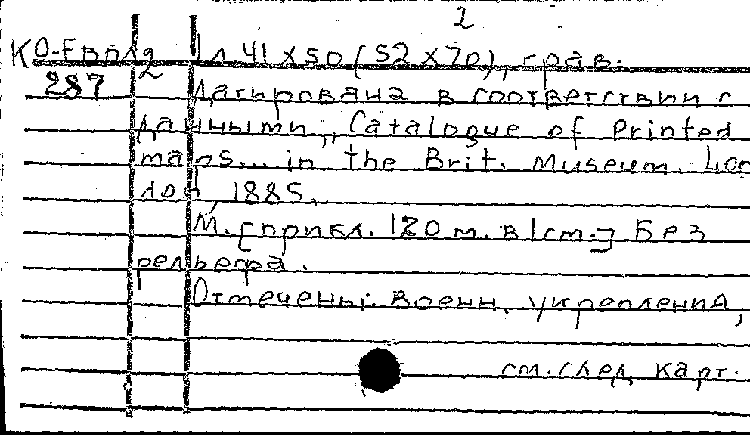 2
КО-Европа 2 1 л. 41 x 50 (52 x 70), грав.
287 Датирована в соответствии с
данными „Catalogue of Printed
maps... in the Brit. Museum. Lon
дон, 1885.
М. [прикл. 120 м. в 1 см.] Без
рельефа.
Отмечены: военн. укрепления,
см. след. карт.